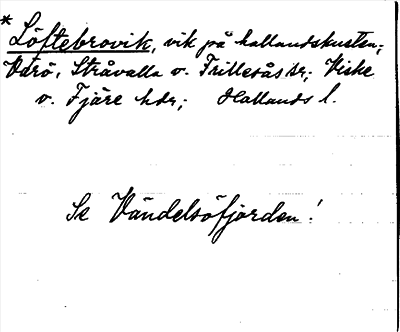 * Löftebrovik, vik på hallandskusten;
Värö, Stråvalla o. Frillesås sr; Viske
o. Fjäre hdr; Hallands l.
Se Vändelsöfjorden!